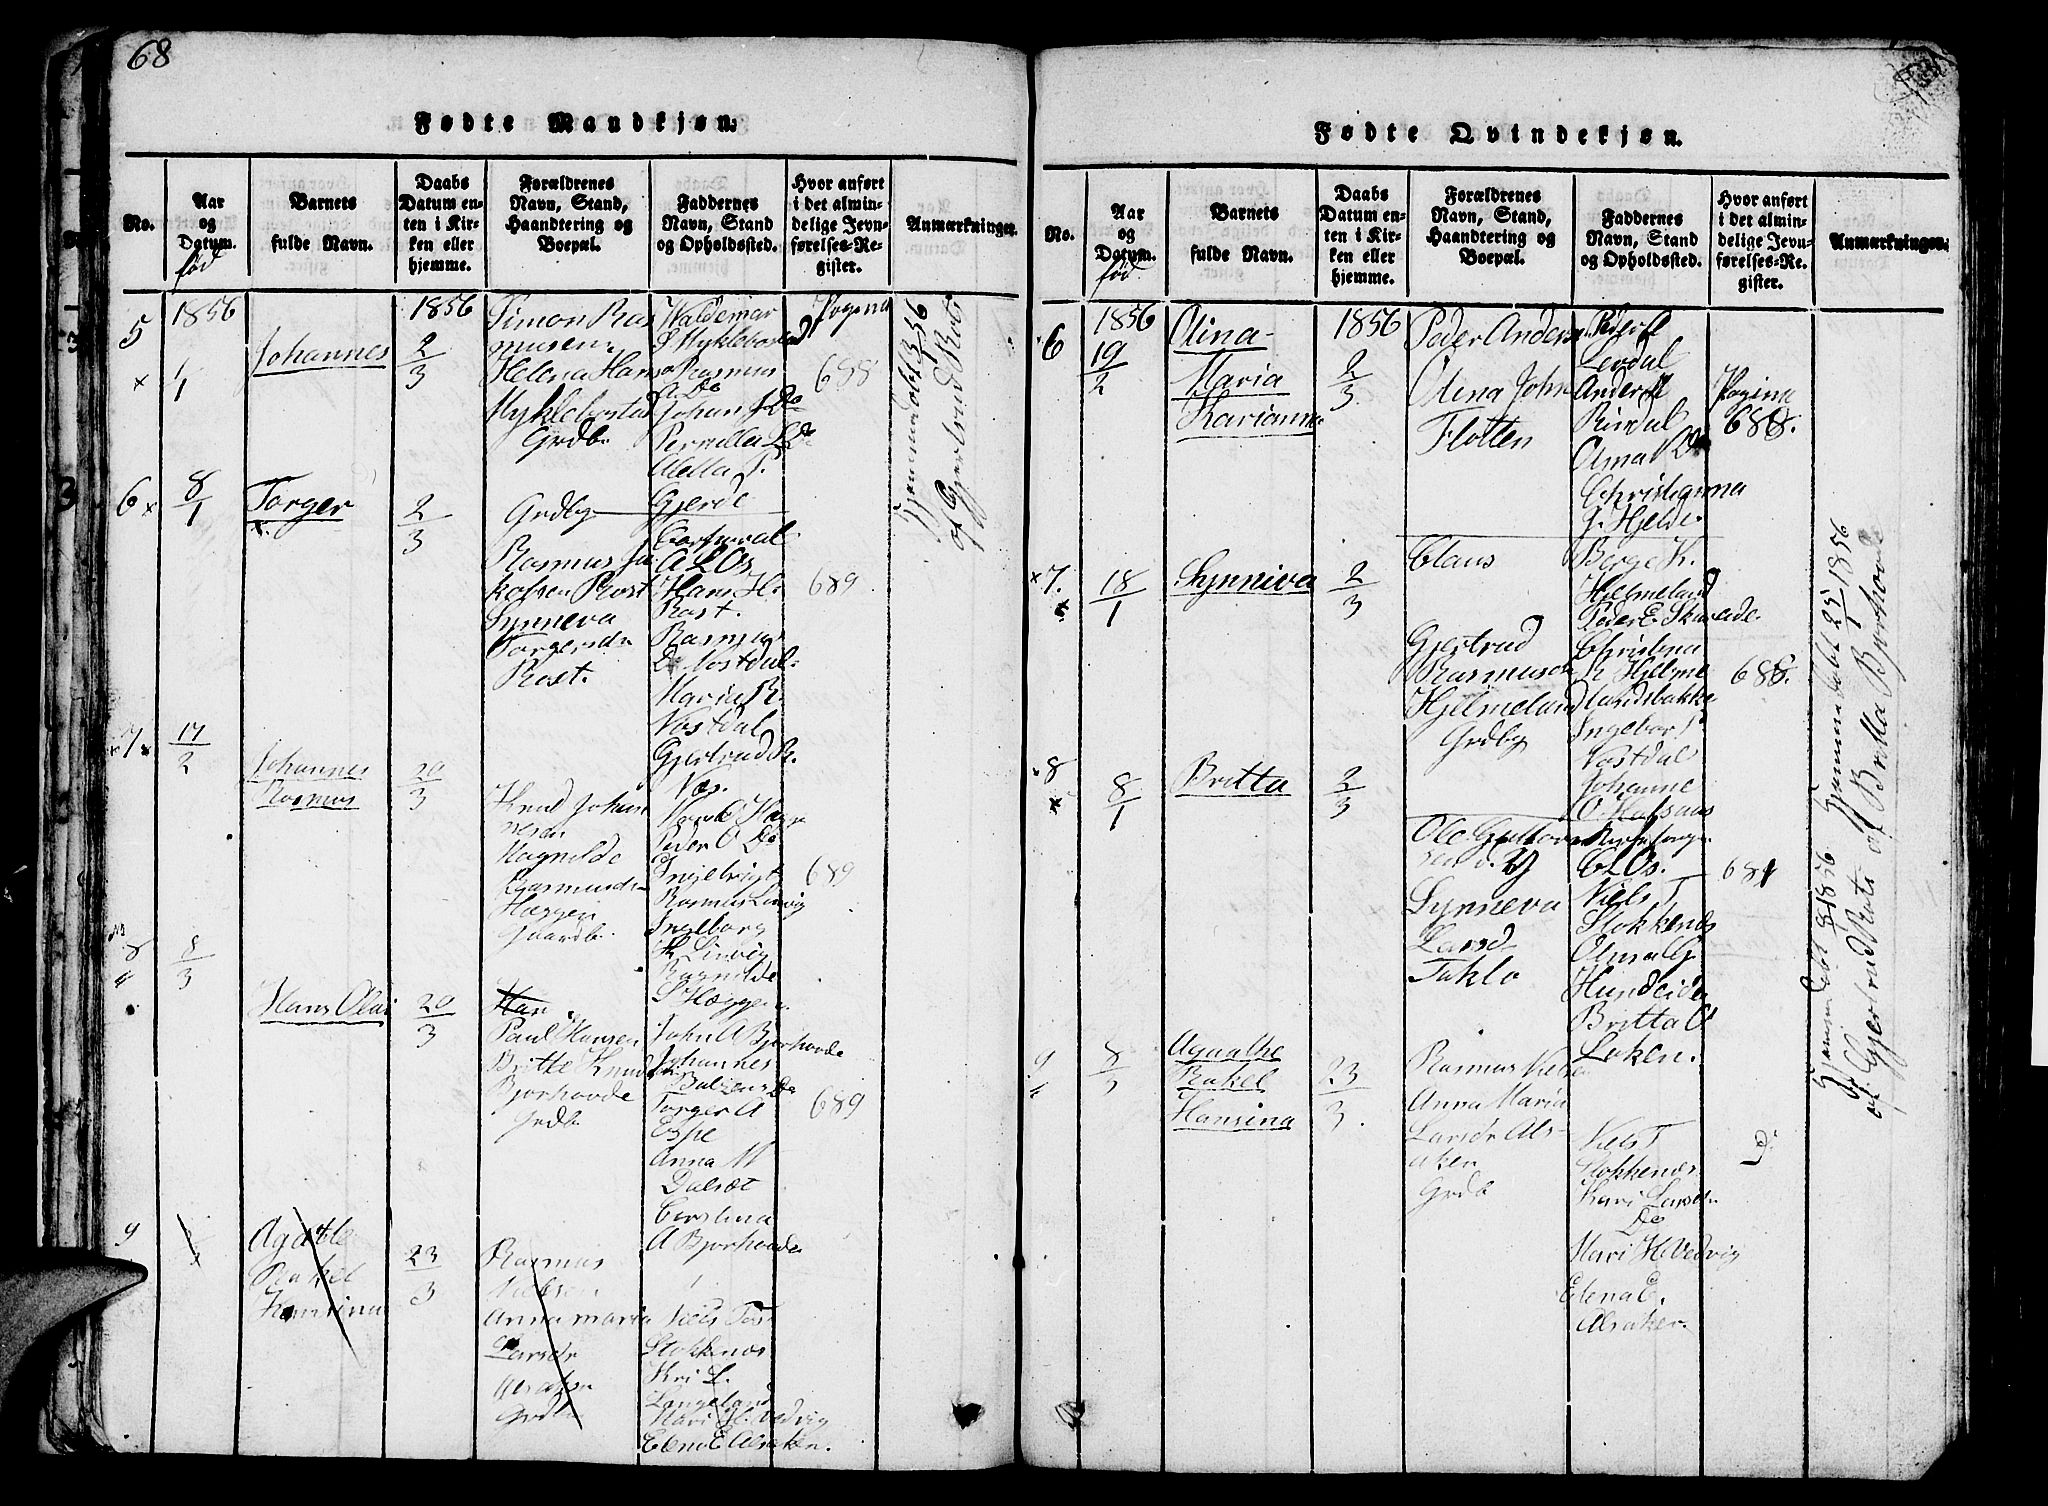 68
Fødte Mandkjøn.
No.
Aar
og
Datum.
fød
Barnets
fulde Navn.
Daabs
Datum en-
ten i Kir-
ken eller
hjemme.
Forældrenes
Navn, Stand,
Haandtering og
Boepæl.
Faddernes
Navn, Stand
og Opholdssted.
Hvor anført
i det almin-
delige Jevn-
førelses-Re-
gister.
Anmærkninger.
5
1856
1/1
Johannes
1856
2/3
Simon Ras
musen
Helena Hans
Myklebostad
Grdb.
Waldemar
S Myklebostad
Rasmus
A Do
Johan J Do
Pernilla L Do
Aletta P.
Pagina
688
Hjemmedøbt 3/1 56
af Gjertrud Rote
6
8/1
Torger
2/3
Grdby
Rasmus Ja
kobsen Rost
Synneva
Torgersdr
Rost.
Gjerde
Corporal
A L Os
Hans H.
Rost.
Rasmus
D. Nostdal.
Maria R.
Nostdal
Gjertrud R.
Nos.
689
7
17/2
Johannes
Rasmus
20/3
Knud Johan
nesen
Ragnilde
Rasmusdr
Hæggen
Gaardb.
Peder O Do
Ingebrigt
Rasmus Linvig
Ingeborg
R Linvig
Ragnilde
S Hæggen
689
8
8/3
Hans Olai
20/3
Paul Hansen
Britte Knuds
Bjorhovde
Grdb
John A Bjorhovde
Johannes
Balzers Do
Torger A
Espe
Anna M
Dalset
Cerstina
A Bjorhovde
689
9
Agathe
Rakel
Hansina
23/3
Rasmus
Nielsen
Anna maria
Larsdr
Alsaken
Grdb
Niels Tos
Stokkenos
Kri L.
Langeland
Mari H. Vedvig
Elena E Alsaken.
Fødte Qvindekjøn.
No.
Aar
og
Datum.
fød
Barnets
fulde Navn.
Daabs
Datum en-
ten i Kir-
ken eller
hjemme.
Forældrenes
Navn, Stand,
Haandtering og
Boepæl.
Faddernes
Navn, Stand
og Opholdssted.
Hvor anført
i det almin-
delige Jevn-
førelses-Re-
gister.
Anmærkninger.
6
1856
19/2
Olina
Maria
Karianna
1856
2/3
Peder Anders
Olena John
Flotten
Peder A
Levdal
Anders A
Rindal
Anna R Do
Christianna
G. Hjelde.
Pagina
688.
7.
18/1
Synniva
2/3
Claus
Gjertrud
Rasmusdr
Hjelmeland
Grdby
Berge K.
Hjelmeland
Peder E Skurede
Christina
R Hjelme
landsbakke
Ingebor P
Nostdal
688.
Hjemmedøbt 25/1 1856
af Britta Bjorhovde
8
8/1
Britta
2/3
Synneva
Larsd
Taklo
Johanne
C L Os.
Niels T
Stokkenos
Anna G
Hundeide
Britta O
Loken.
681
Hjemmedøbt 8/1 1856
af Gjertrud Rote
9
8/3
Agaathe
Rakel
Hansina
23/3
Rasmus Niels
Anna Maria
Larsdr Als-
aken
Grdb
Niels T
Stokkenos
Kari Larsdr
Do
Mari H Vedvig
Elena E.
Alsaker.
D.